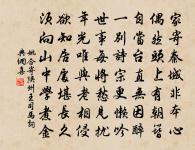 家寄秦城非本心
偶然頭上有朝簪
自當台直無因醉
一別詩宗更懶吟
世事每將愁見擾
年光唯與老相侵
欲知居處堪長久
須向山中學煮金
姚合寄陝州王司馬詞
典網集